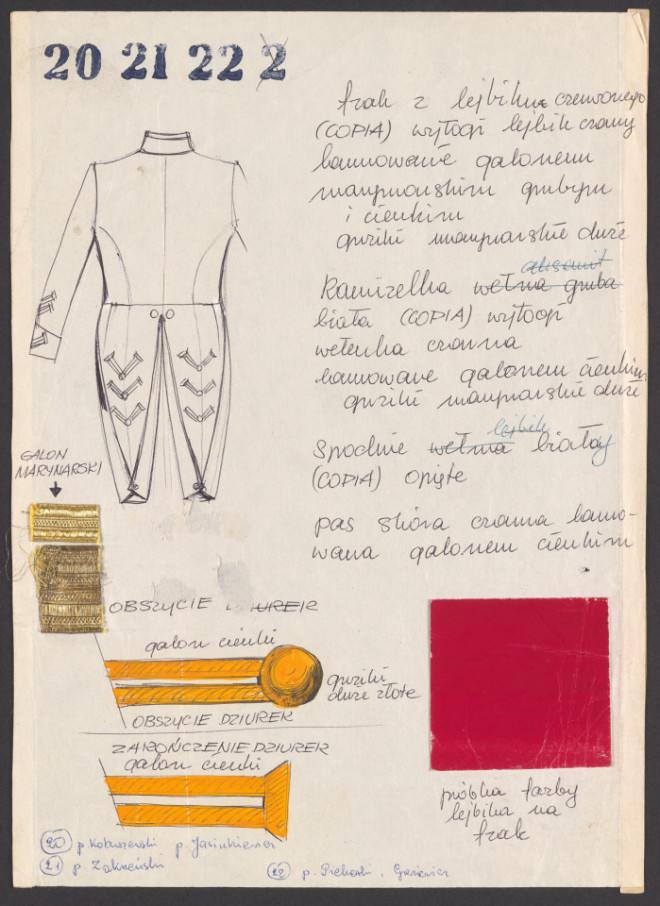 20 21 22 2
frak z lejbiku czerwonego
(COPIA) wyłogi lejbik czarny
lamowane galonem
marynarskim grubym
i cienkim
guziki marynarskie duże
aksamit
Kamizelka wełna gruba
biała (COPIA) wyłogi
wełenka czarna
lamowane galonem cienkim
guziki marynarskie duże
lejbik
Spodnie wełna białay
(COPIA) opięte
pas skóra czarna lamo-
wana galonem cienkim
GALON
MARYNARSKI
OBSZYCIE DZIUREK
galon cienki
guziki
duże złote
OBSZYCIE DZIUREK
ZAKOŃCZENIE DZIUREK
galon cienki
próbka farby
lejbika na
frak
20 p. Kobuszewski p.
21 p. Zakrzeński
22 p.